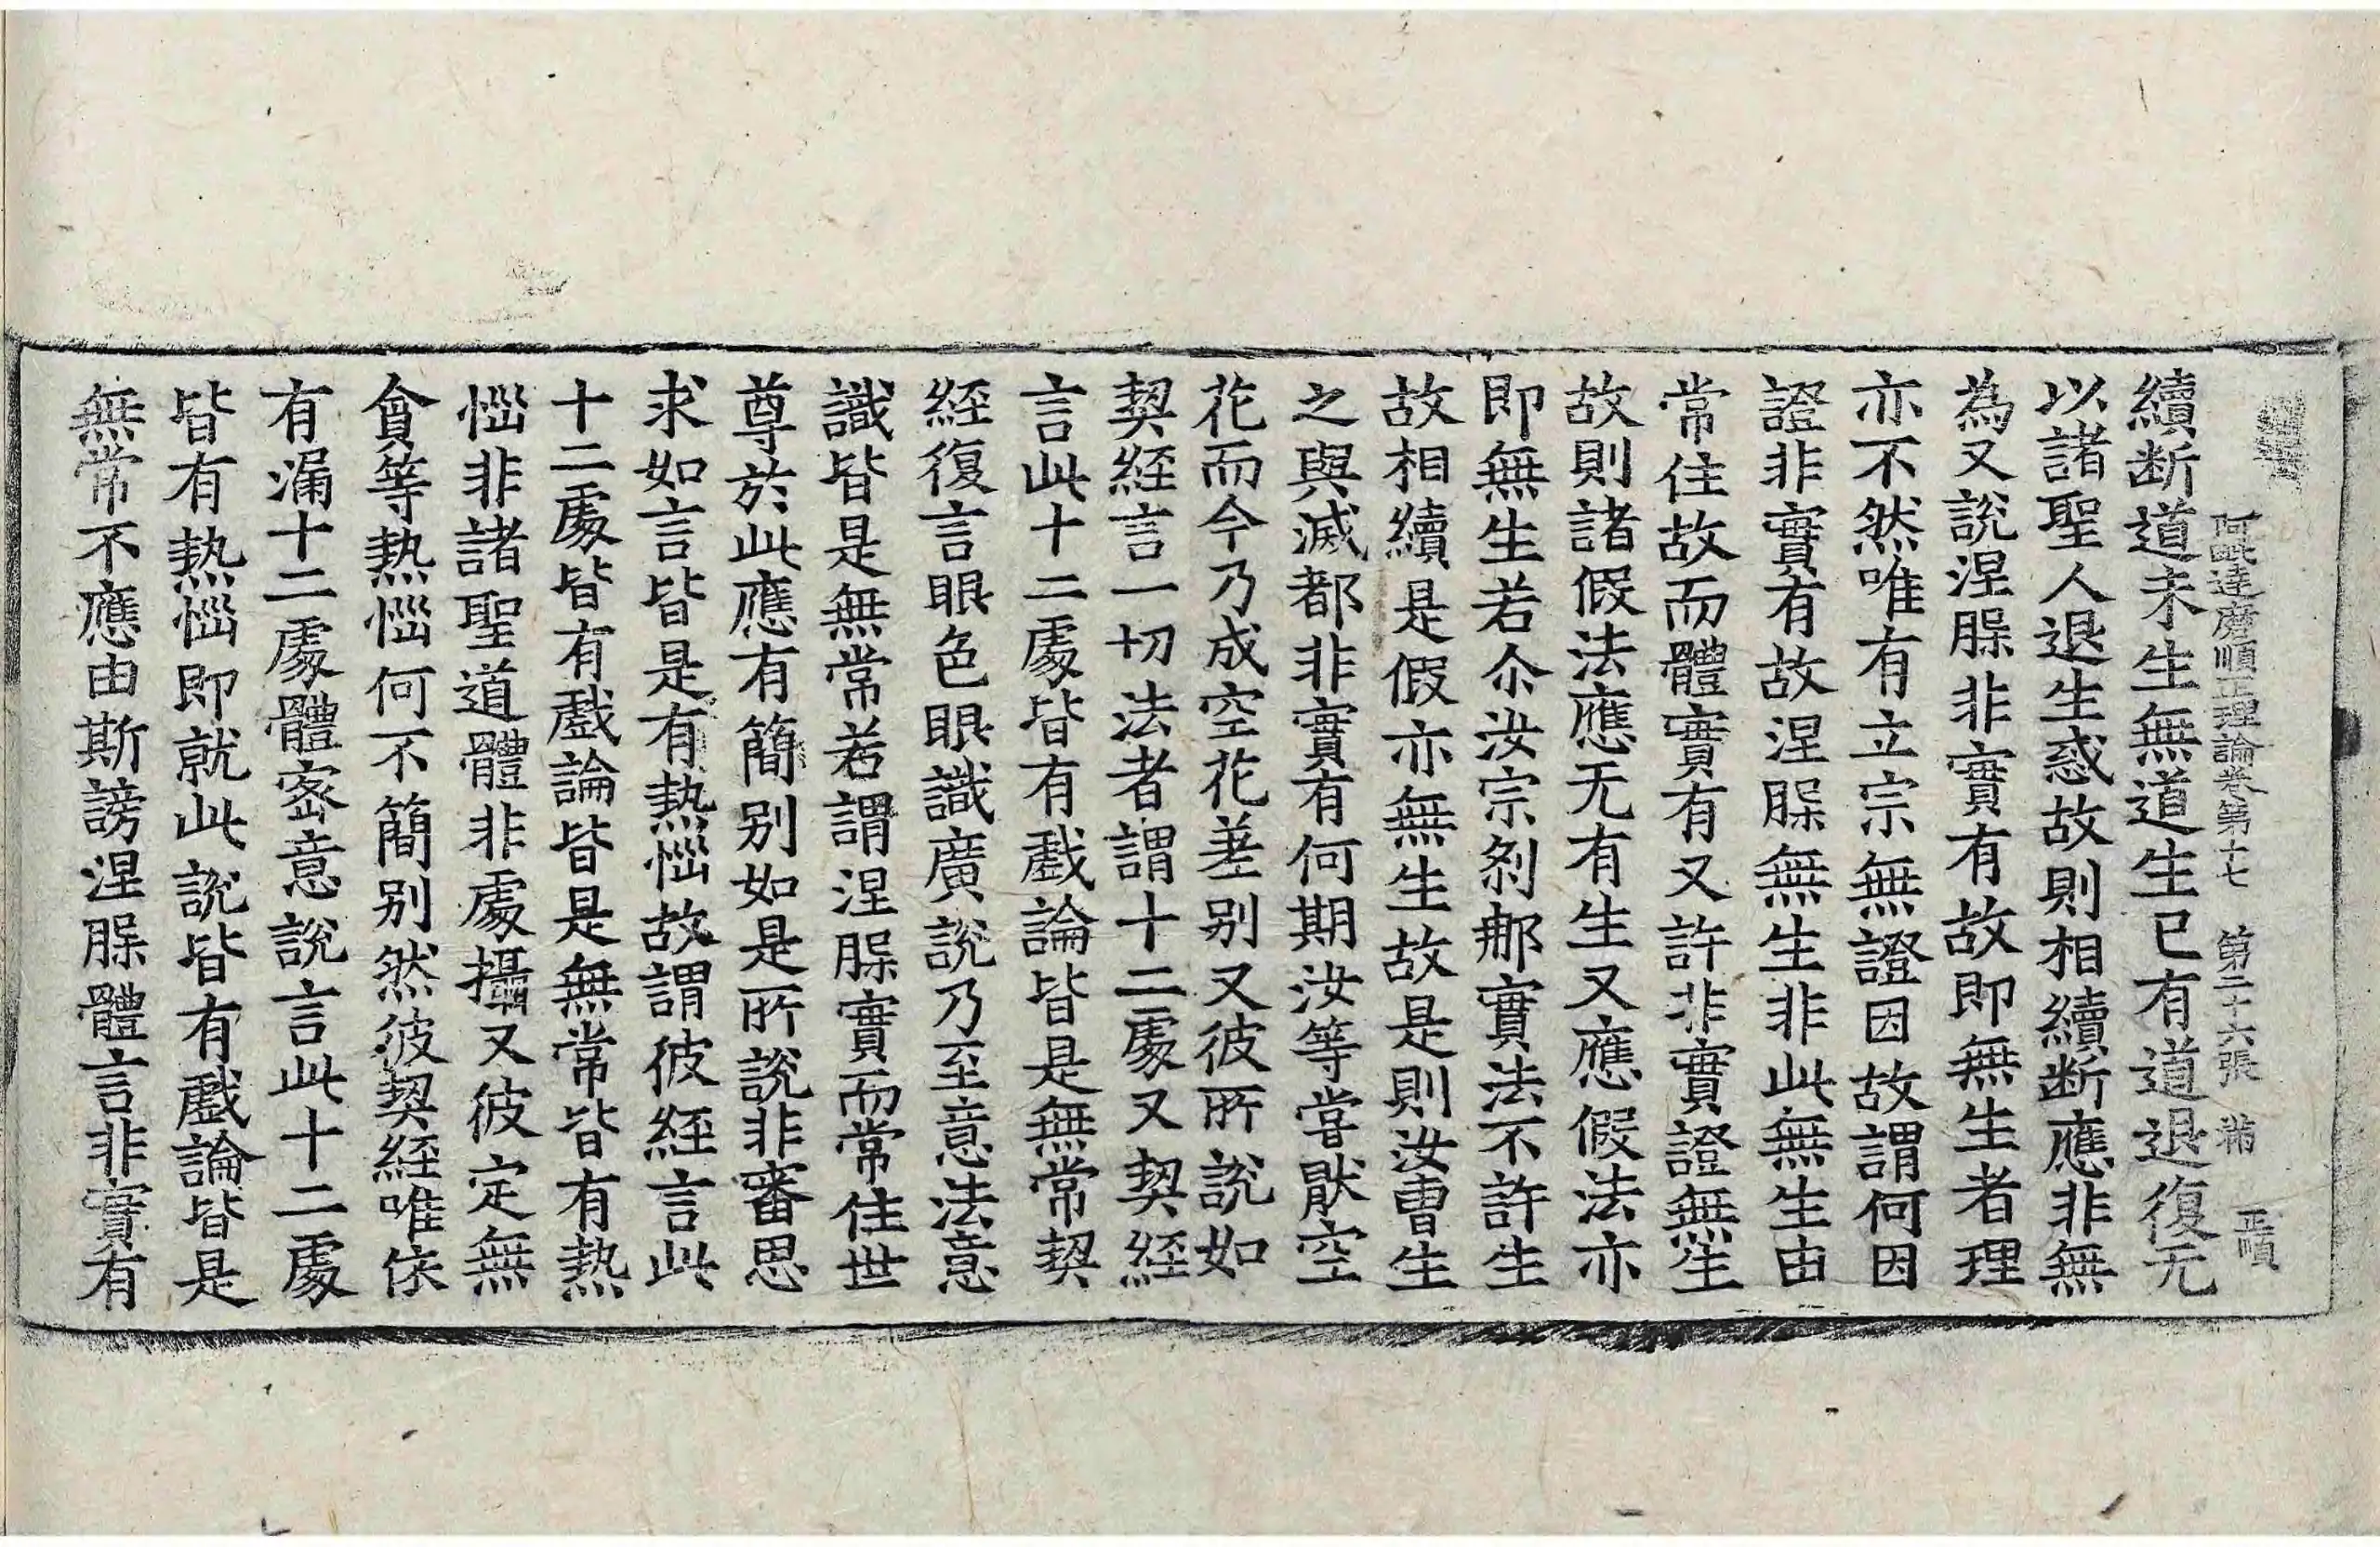 阿毗達磨順正理論卷第十七 第二十六張 正順
續斷道未生無道生已有道退復无
以諸聖人退生惑故則相續斷應非無
為又說涅脲非實有故即無生者理
亦不然唯有立宗無證因故謂何因
證非實有故涅脲無生非此無生由
常住故而體實有又許非實證無生
故則諸假法應无有生又應假法亦
即無生若尒汝宗剎那實法不許生
故相續是假亦無生故是則汝曹生
之與滅都非實有何期汝等甞猒空
花而今乃成空花差别又彼所說如
契經言一切法者謂十二處又契經
言此十二處皆有戲論皆是無常契
經復言眼色眼識廣說乃至意法意
識皆是無常若謂涅脲實而常住世
尊於此應有簡别如是所說非審思
求如言皆是有熱惱故謂彼經言此
十二處皆有戲論皆是無常皆有熱
惱非諸聖道體非處攝又彼定無
貪等熱惱何不簡别然彼契經唯依
有漏十二處體密意說言此十二處
皆有熱惱即就此說皆有戲論皆是
無常不應由斯謗涅脲體言非實有